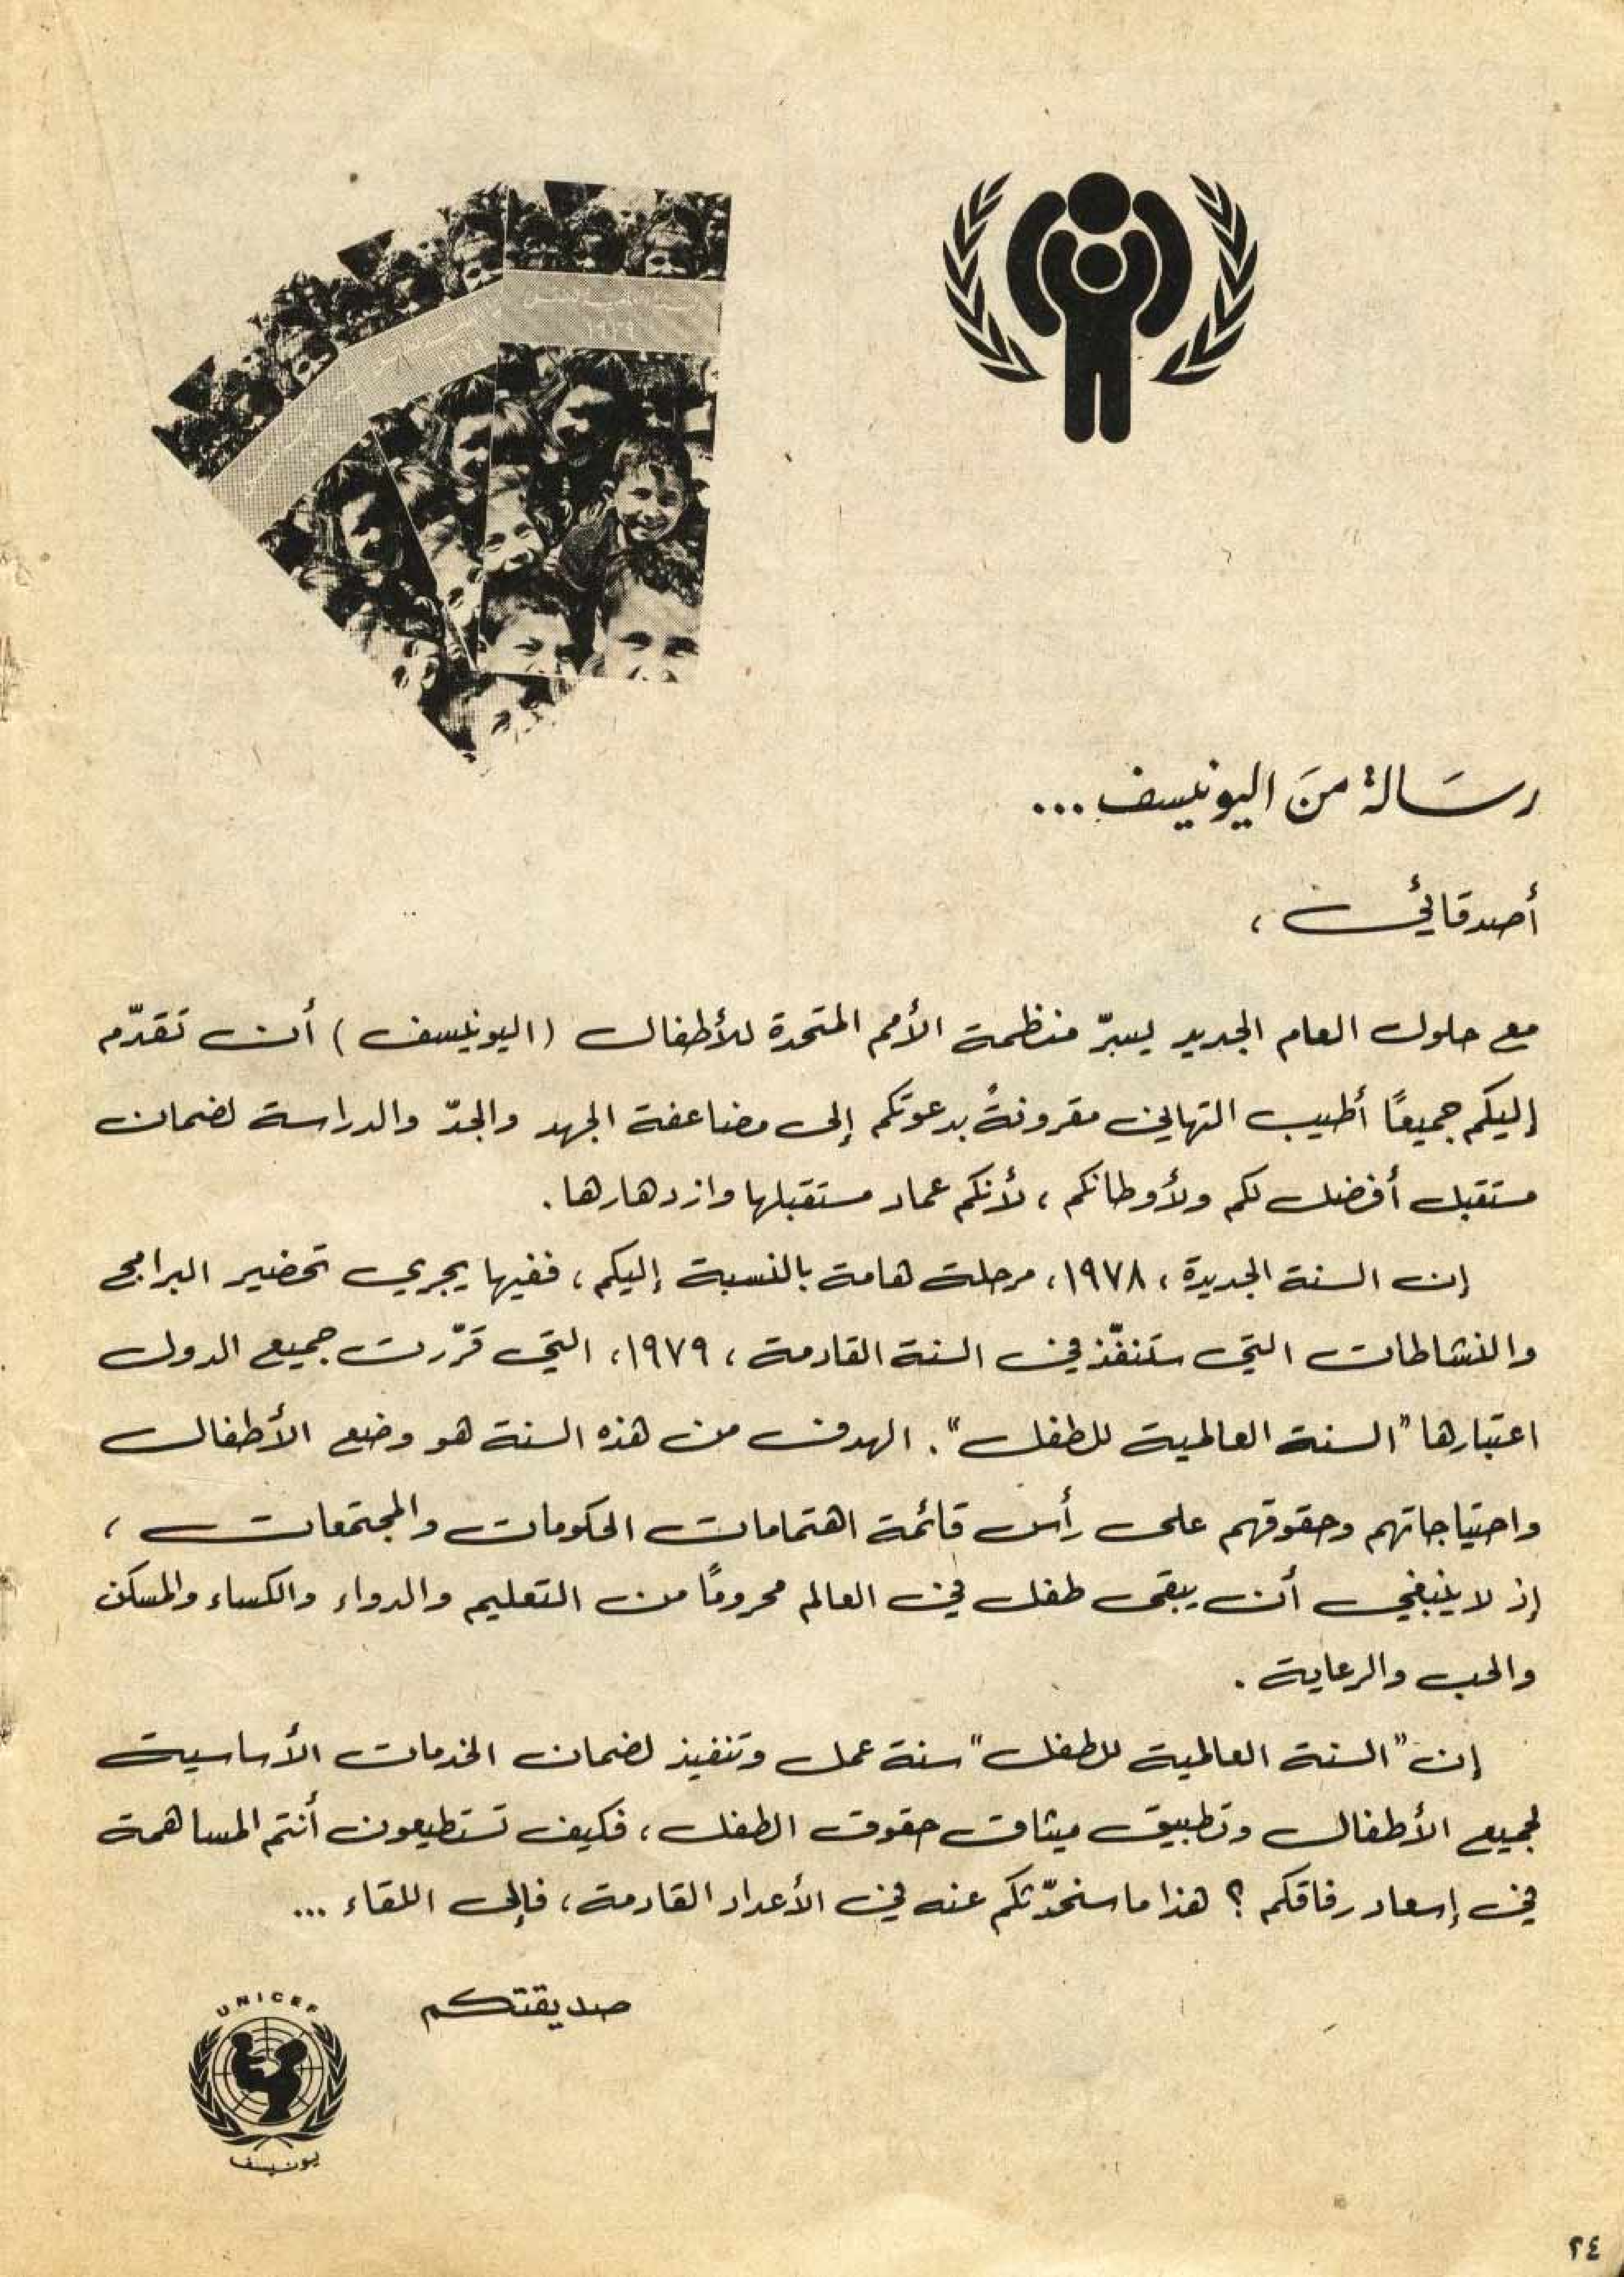 السنة العالمية للطفل
١٩٧٩
رسَالة منَ اليونيسف...
أصدقائي،
مع حلول العام الجديد يسرّ منظمة الأمم المتحدة للأطفال (اليونيسف) أن تقدّم
إليكم جميعًا أطيب التهاني مقرونةً بدعوتكم إلى مضاعفة الجهد والجدّ والدراسة لضمان
مستقبل أفضل لكم ولأوطانكم، لأنكم عماد مستقبلها وازدهارها.
إن السنة الجديدة، ١٩٧٨، مرحلة هامة بالنسبة إليكم، ففيها يجري تحضير البرامج
والنشاطات التي ستنفّذ في السنة القادمة، ١٩٧٩، التي قرّرت جميع الدول
اعتبارها "السنة العالمية للطفل". الهدف من هذه السنة هو وضع الأطفال
واحتياجاتهم وحقوقهم على رأس قائمة اهتمامات الحكومات والمجتمعات،
إذ لا ينبغي أن يبقى طفل في العالم محرومًا من التعليم والدواء والكساء والمسكن
والحب والرعاية.
إن "السنة العالمية للطفل" سنة عمل وتنفيذ لضمان الخدمات الأساسية
لجميع الأطفال وتطبيق ميثاق حقوق الطفل، فكيف تستطيعون أنتم المساهمة
في إسعاد رفاقكم؟ هذا ما سنحدّثكم عنه في الأعداد القادمة، فإلى اللقاء...
صديقتكم
UNICEF
يونيسف
٢٤